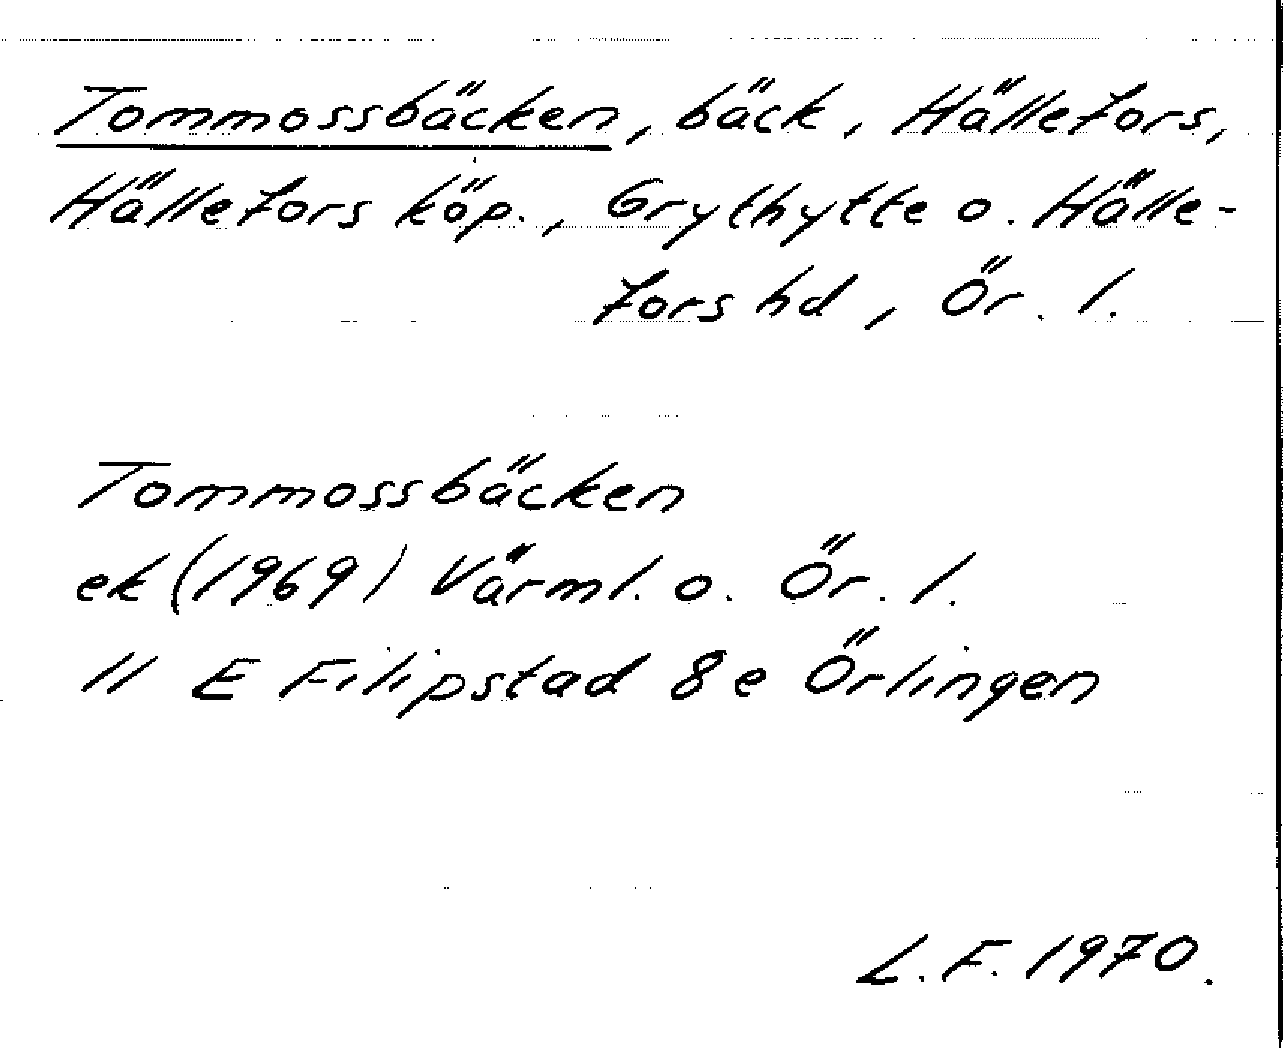 Tommossbäcken, bäck, Hällefors,
Hällefors köp., Grythytte o. Hälle-
fors hd, Ör. l.
Tommossbäcken
ek (1969) Värml. o. Ör. l.
11 E Filipstad 8e Örlingen
L.F. 1970.